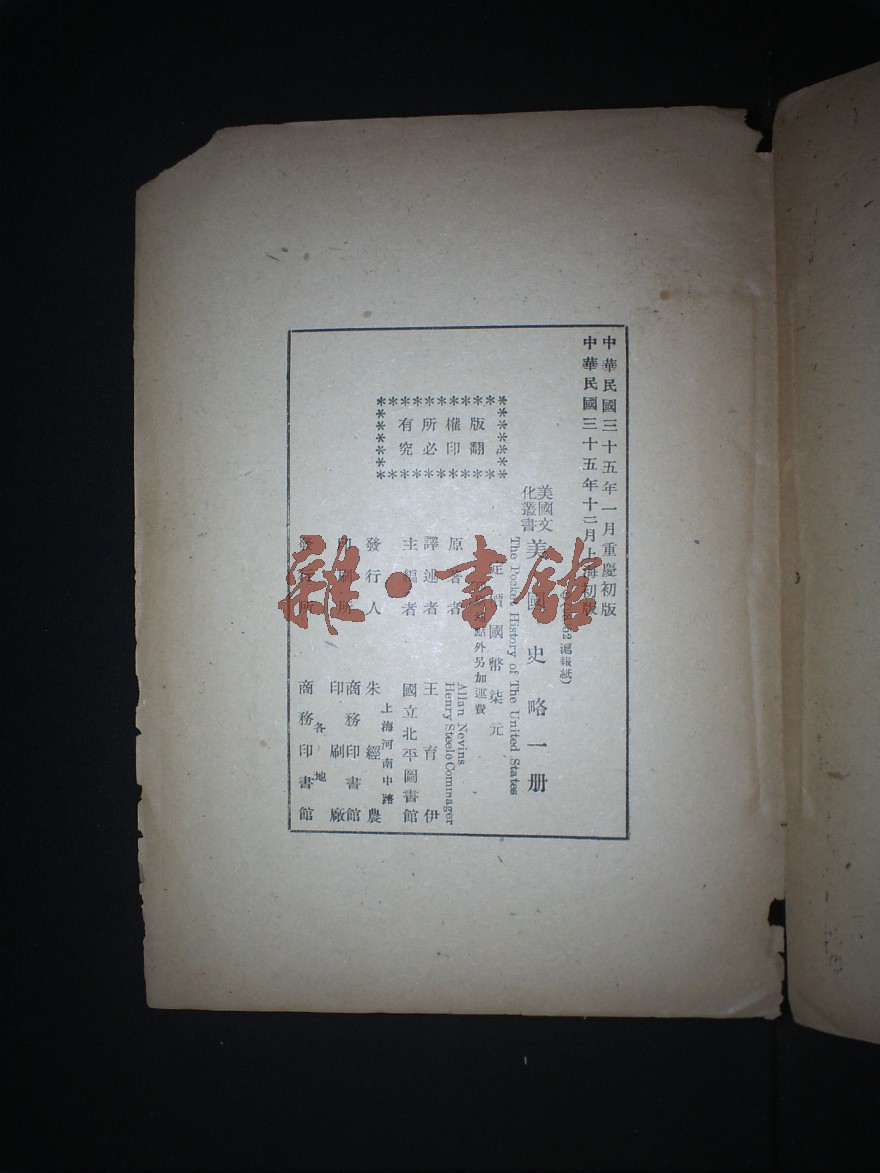 中華民國三十五年一月重慶初版
中華民國三十五年十二月上海初版
滬報紙)
美國文
化叢書
美國史略一册
The Pocket History of The United States
定價國幣柒元
點外另加運費
版權所有
翻印必究
原著者
Allan Nevins
Henry Steele Commager
譯述者 王育伊
主編者 國立北平圖書館
發行人 朱經農
上海河南中路
印刷所 商務印書館
印刷廠
發行所 商務印書館
各地
雜·書館